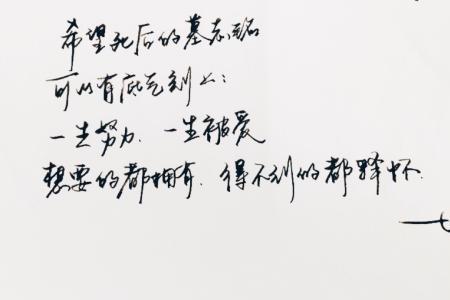 希望死后的墓志铭
可以有底气刻上：
一生努力．一生被爱
想要的都拥有．得不到的都释怀．